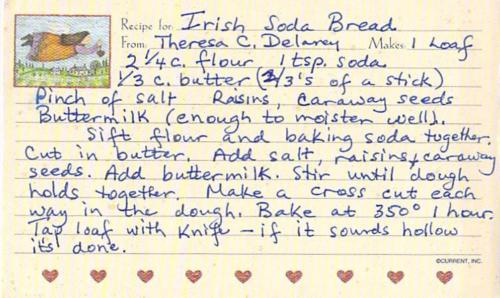 Recipe for: Irish Soda Bread
From: Theresa C. Delaney Makes: 1 Loaf
2 1/4 c. flour 1 tsp. soda
1/3 c. butter (2/3's of a stick)
Pinch of salt Raisins, caraway seeds
Buttermilk (enough to moisten well).
Sift flour and baking soda together.
Cut in butter. Add salt, raisins, caraway
seeds. Add buttermilk. Stir until dough
holds together. Make a cross cut each
way in the dough. Bake at 350° 1 hour.
Tap loaf with Knife - if it sounds hollow
it's done.
©CURRENT, INC.